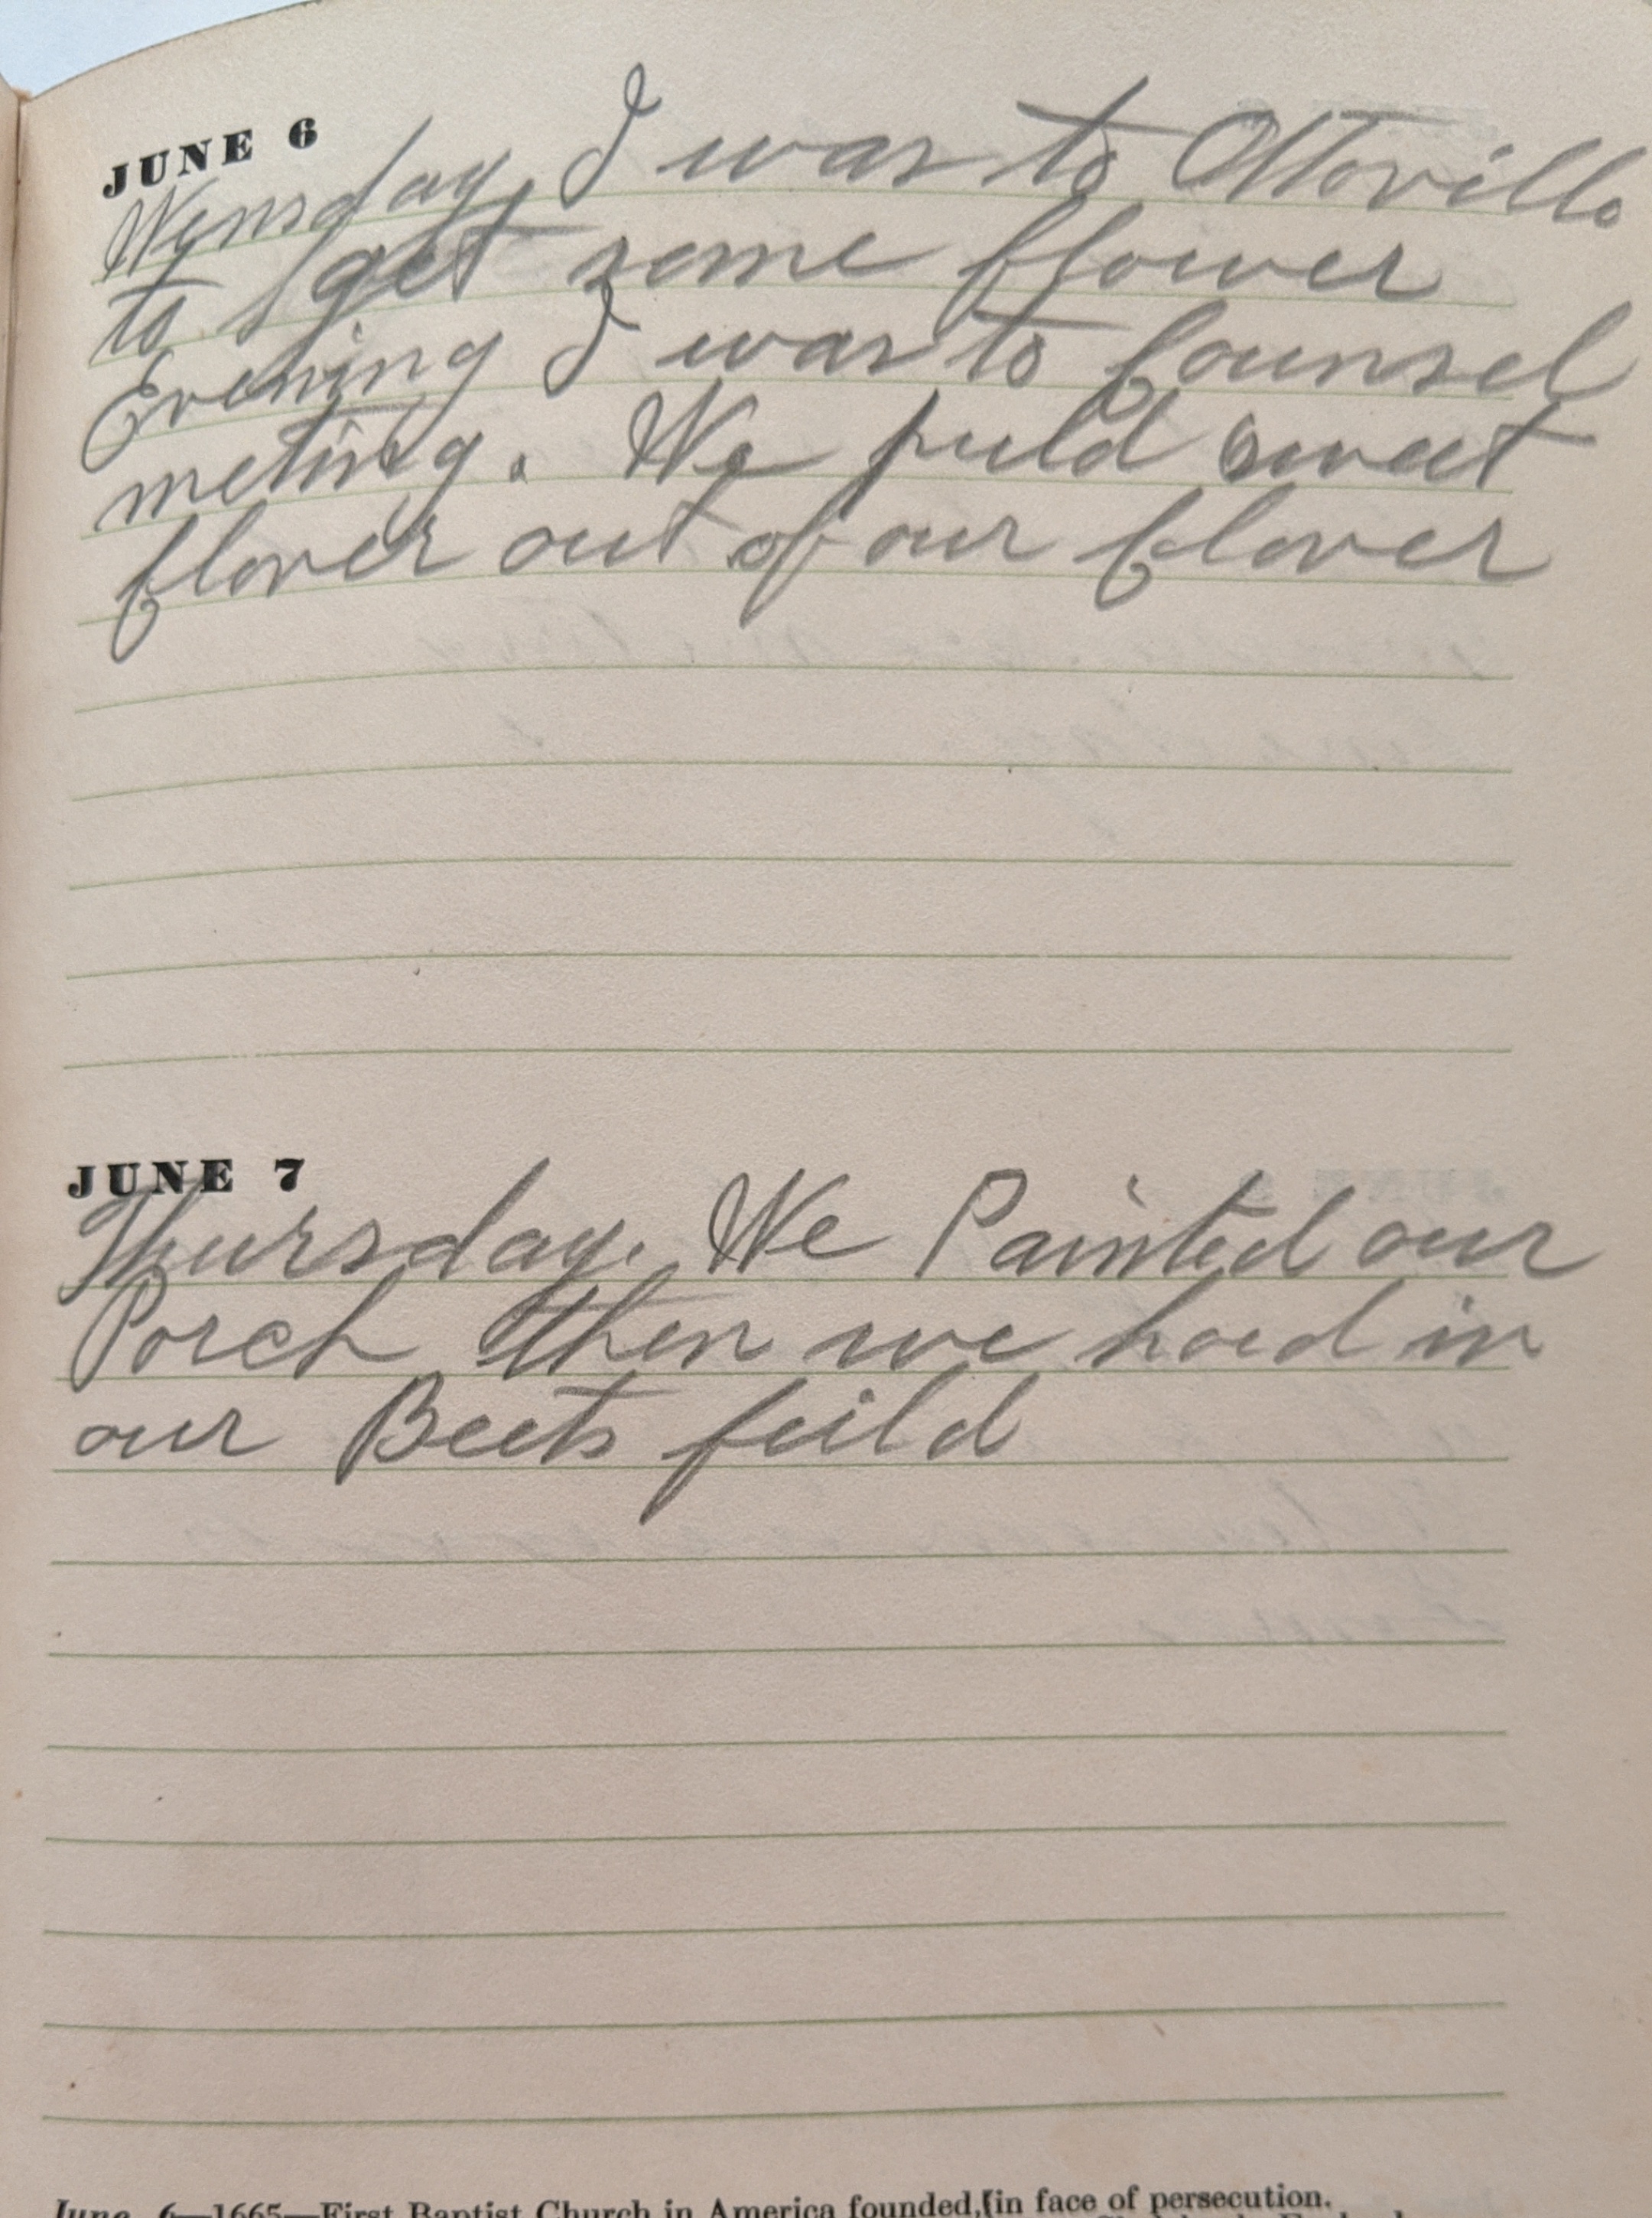 JUNE 6
Wensday, I was to Ottoville
to get some flower
Evening I was to Counsel
meting. We puld sweet
Clover out of our Clover
JUNE 7
Thursday. We Painted our
Porch then we hoed in
our Beets feild
June 6—1665—First Baptist Church in America founded, in face of persecution.